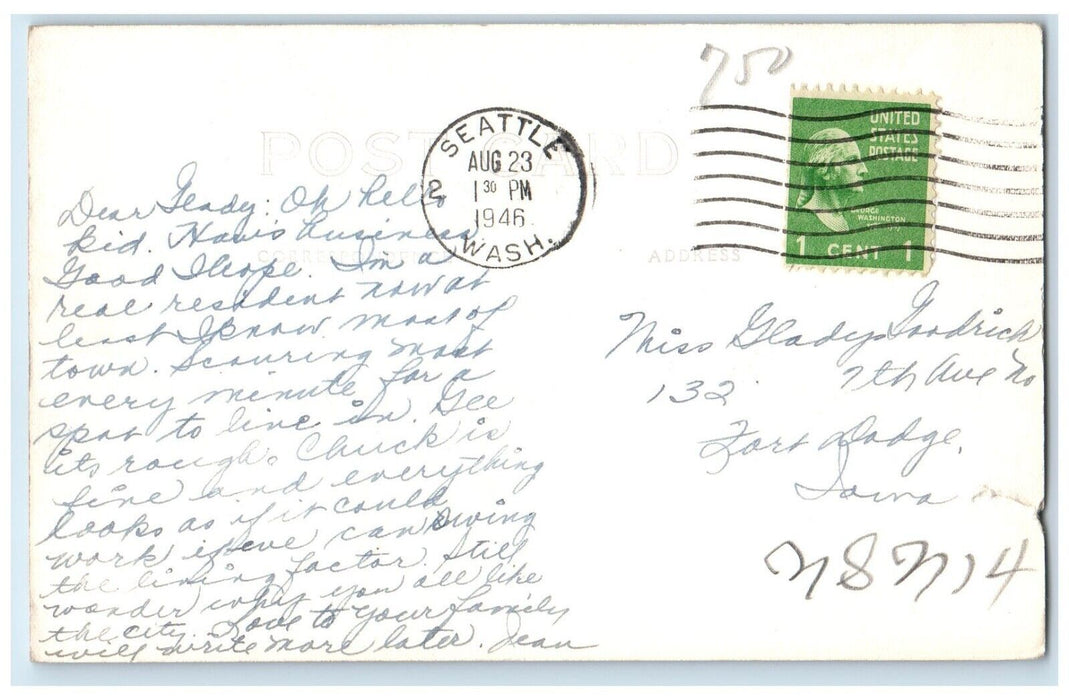 750
POST CARD
SEATTLE
AUG 23
1 30 PM
1946
WASH.
2
UNITED
STATES
POSTAGE
GEORGE
WASHINGTON
1 CENT 1
CORRESPONDENCE
ADDRESS
Dear Glady: Oh hello
kid. Hows business
Good I hope. Im a
real resident now at
least I know most of
town. Scouring most
every minute for a
spot to live in. Gee
its rough. Chuck is
fine and everything
looks as if it could
work if we can swing
the living factor. Still
wonder why you all like
the city. Love to your family
will write more later. Jean
Miss Gladys Goodrich
132 7th Ave No
Fort Dodge,
Iowa